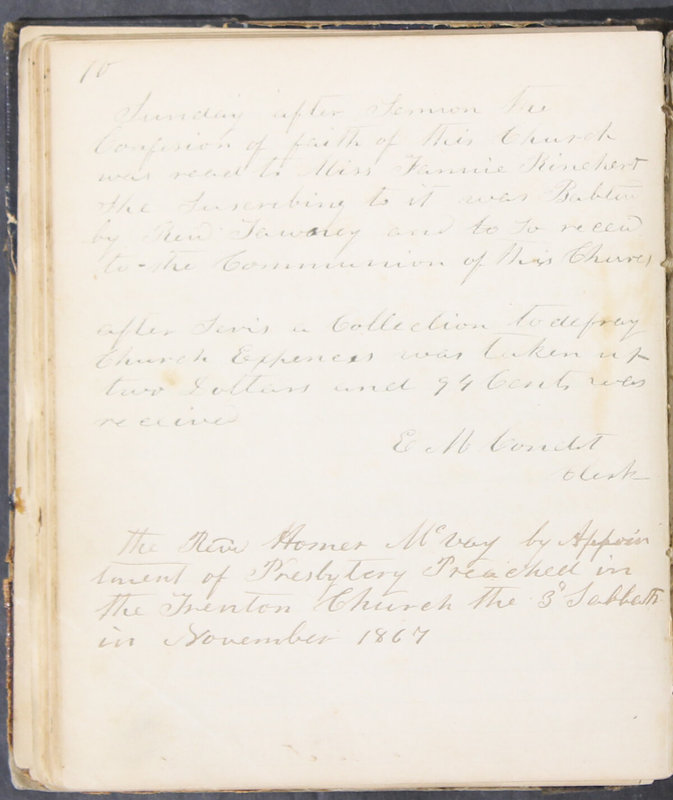 10
Sunday after Sermon the
Confesion of faith of this Church
was read to Miss Fannie Rinehert
She Suscribing to it was Babtiz
by Revd Tawney and to so receed
to the Communion of this Church
after Servis a Collection to defray
Church Expences was taken up
two Dollars and 94 Cents was
receive
E M Condit
Clerk
the Revd Homer McVay by Appoin
tment of Presbytery Preached in
the Trenton Church the 3d Sabbath
in November 1867